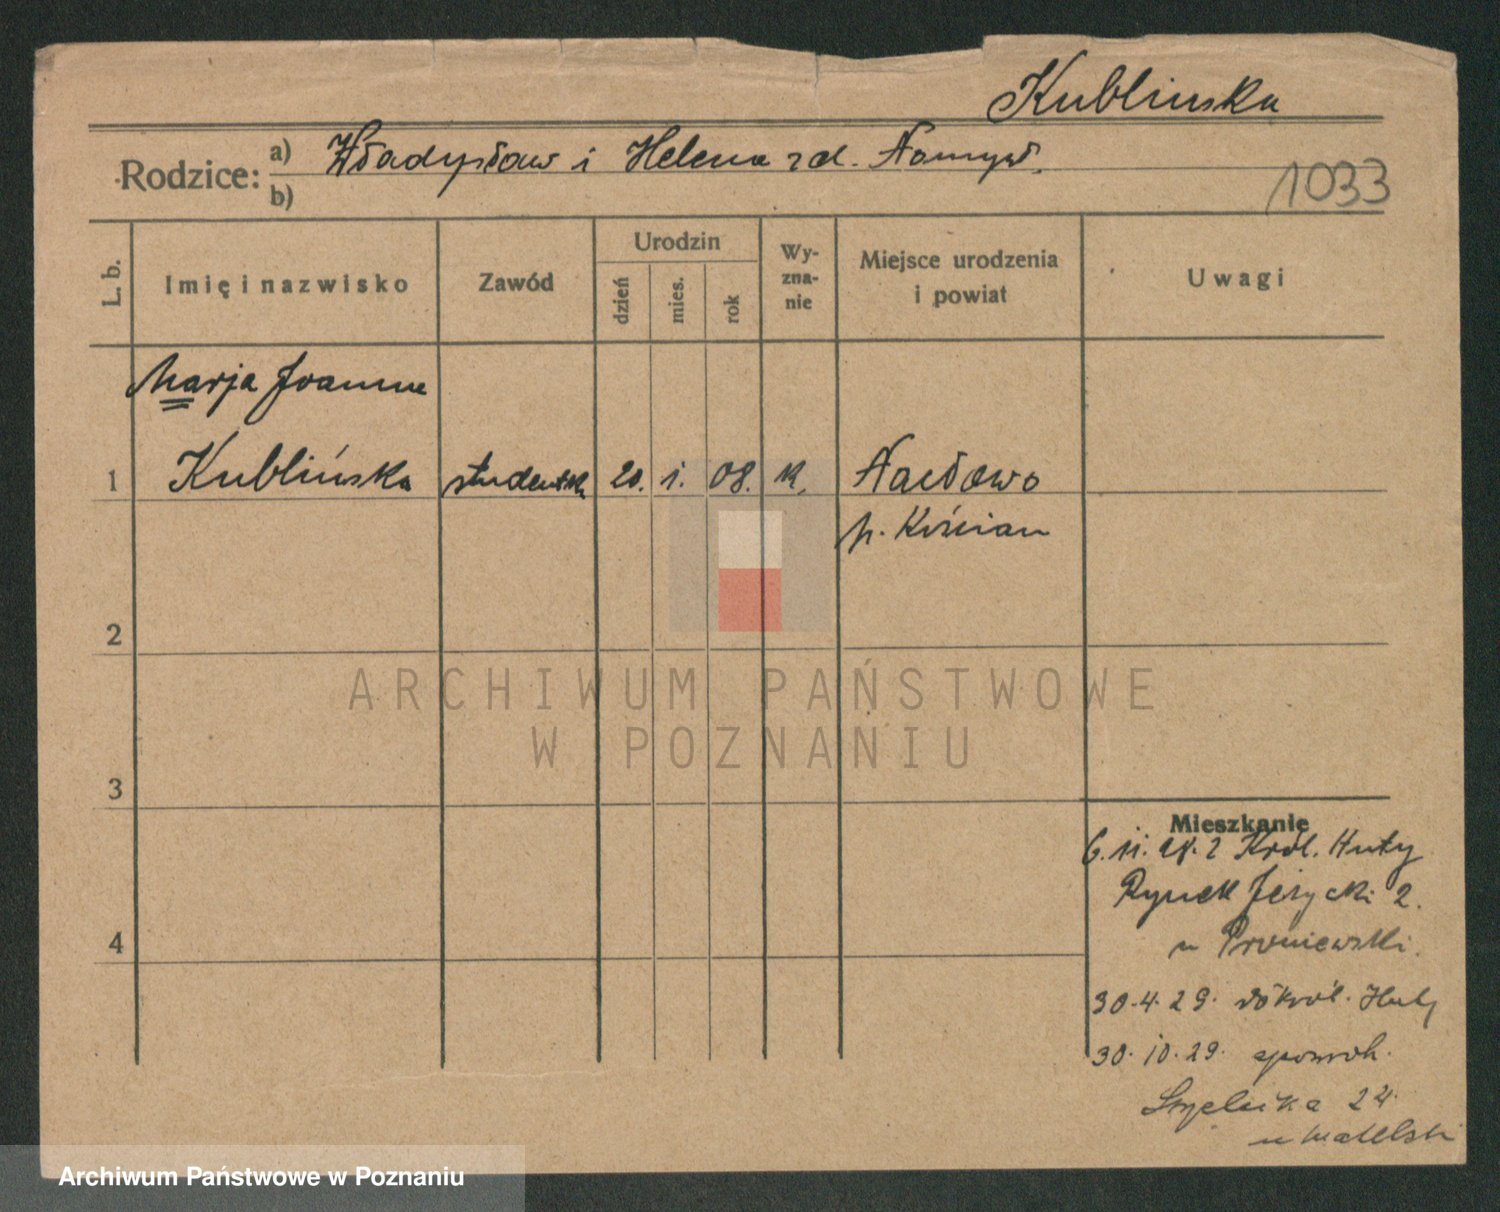 Kublinska
Rodzice: a) Władysław i Helena zd. Namysł.
b)
1033
L. b.
Imię i nazwisko
Zawód
Urodzin
dzień
mies.
rok
Wy-
zna-
nie
Miejsce urodzenia
i powiat
Uwagi
Marja Joanna
1 Kublińska studentka 20. 1. 08. k. Nacławo
p. Kościan
2
3
4
Mieszkanie
6. 11. 28. z Król. Huty
Rynek Jeżycki 2.
u Proniewski.
30.4.29. do Król. Huty
30.10.29. spowroh.
Strzelecka 24
ARCHIWUM PAŃSTWOWE
W POZNANIU
Archiwum Państwowe w Poznaniu